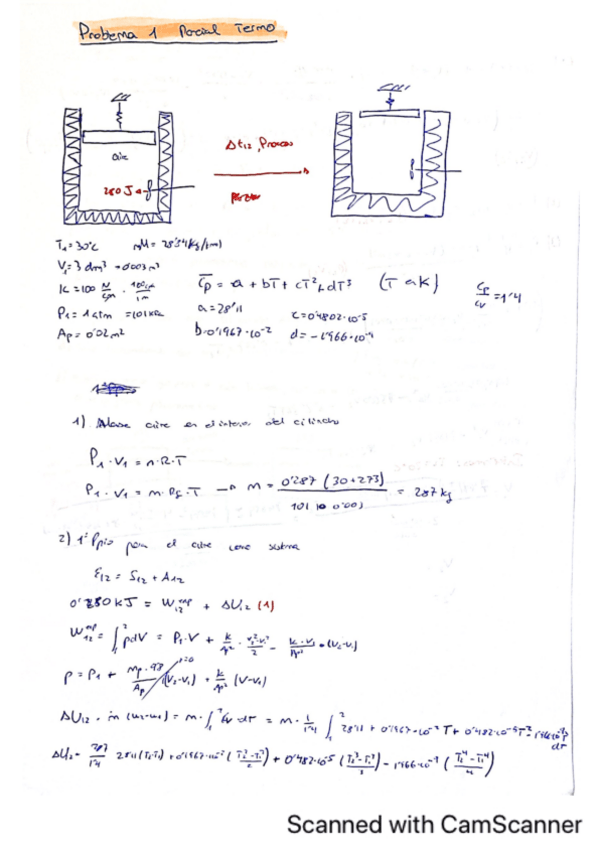 Problema 1 Parcial Termo
aire
250 J
Δt12, Proceso
T1 = 30°C
V1 = 3 dm³ → 0'003 m³
K = 100 N/cm · 100cm/1m
P1 = 1 atm = 101 KPa
Ap = 0'02 m²
C̅p = a + bT + cT² + dT³ (T a K)
Cp/Cv = 1'4
a = 28'11
b = 0'1967·10⁻²
c = 0'4802·10⁻⁵
d = -1'966·10⁻⁹
1) Masa aire en el interior del cilindro
P1 · V1 = n·R·T
P1 · V1 = m · Rg · T → m = 0'287 (30+273) / 101 · 0'003 = 287 kg
2) 1º Ppio para el aire como sistema
E12 = S12 + A12
KJ = W12 exp + ΔU12 (1)
W12 exp = ∫₁² pdV = P1·V + k/Ap² · V2²-V1²/2 - k·V1/Ap² · (V2-V1)
p = P1 + mp·9'8/Ap (V2-V1) + k/Ap² (V-V1)
ΔU12 = m (u2-u1) = m · ∫₁² Cv dT = m · 1/1'4 ∫₁² 28'11 + 0'1967·10⁻² T + 0'482·10⁻⁵ T² - 1'966·10⁻⁹ T³ dT
ΔU12 = 287/1'4 28'11 (T2-T1) + 0'1967·10⁻² (T2²-T1²/2) + 0'482·10⁻⁵ (T2³-T1³/3) - 1'966·10⁻⁹ (T2⁴-T1⁴/4)
Scanned with CamScanner